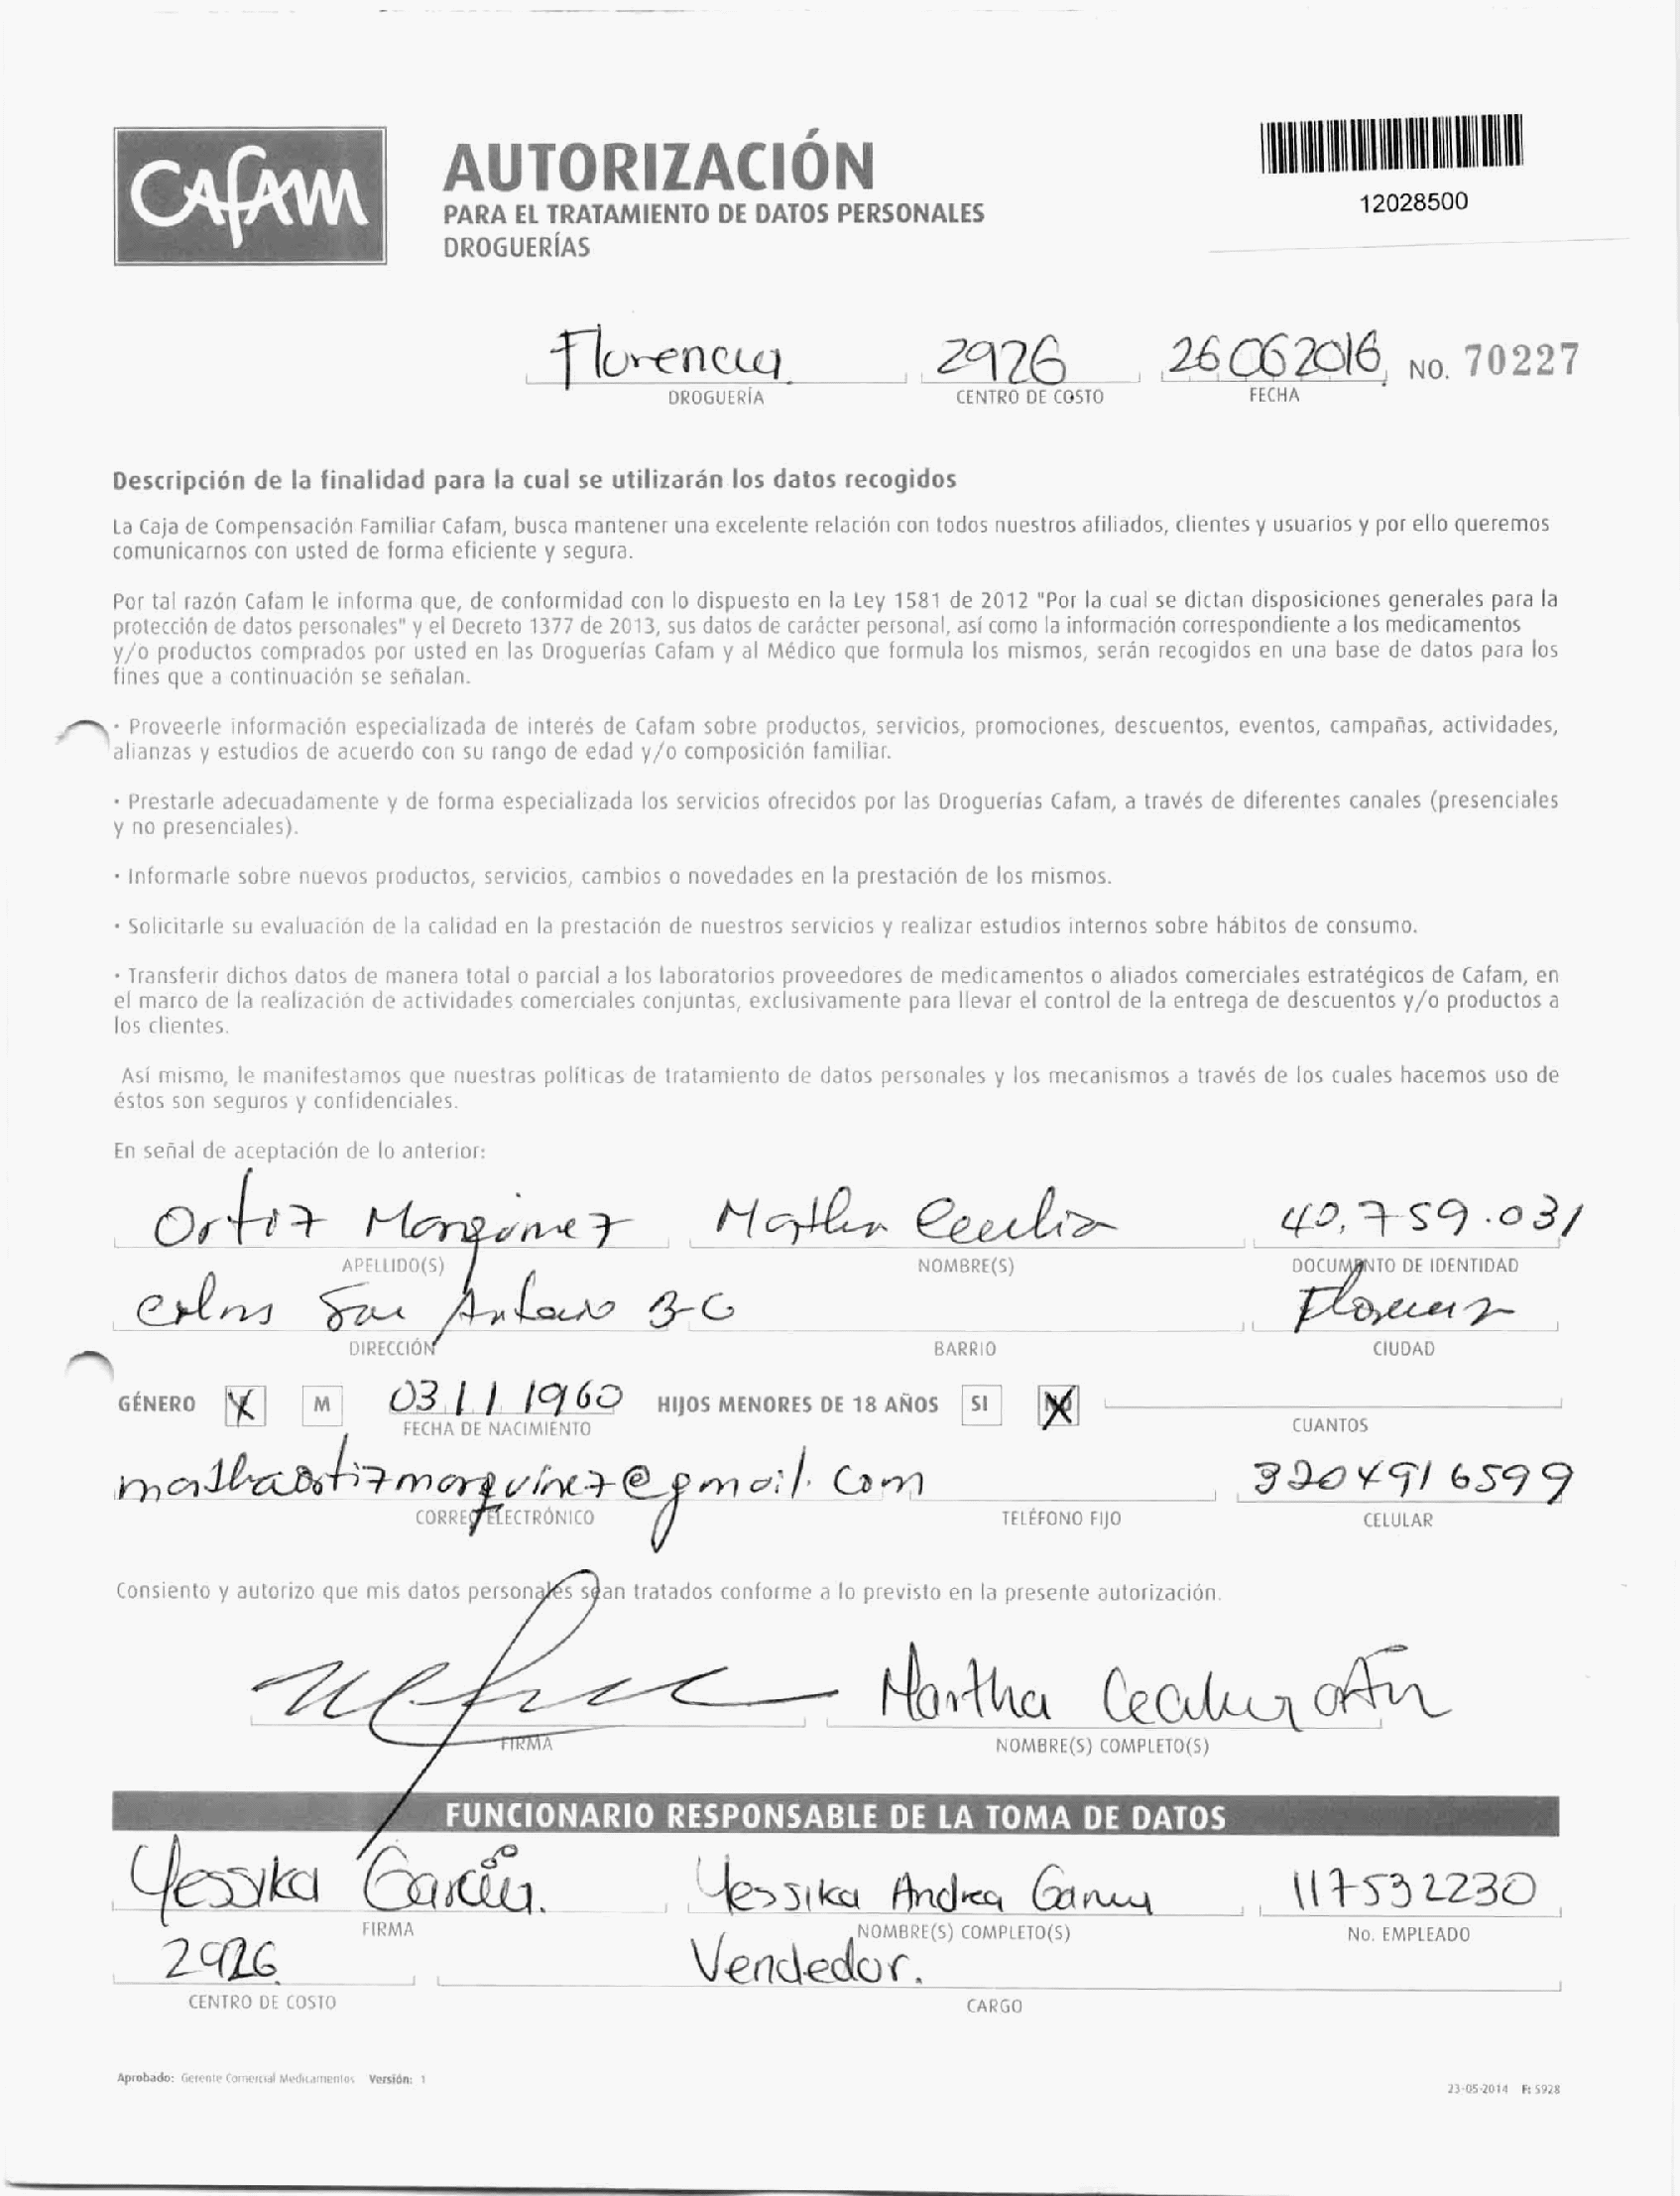 CAFAM
AUTORIZACIÓN
PARA EL TRATAMIENTO DE DATOS PERSONALES
DROGUERÍAS
12028500
Florencia 2926 26 06 2016 NO. 70227
DROGUERÍA CENTRO DE COSTO FECHA
Descripción de la finalidad para la cual se utilizarán los datos recogidos
La Caja de Compensación Familiar Cafam, busca mantener una excelente relación con todos nuestros afiliados, clientes y usuarios y por ello queremos
comunicarnos con usted de forma eficiente y segura.
Por tal razón Cafam le informa que, de conformidad con lo dispuesto en la Ley 1581 de 2012 "Por la cual se dictan disposiciones generales para la
protección de datos personales" y el Decreto 1377 de 2013, sus datos de carácter personal, así como la información correspondiente a los medicamentos
y/o productos comprados por usted en las Droguerías Cafam y al Médico que formula los mismos, serán recogidos en una base de datos para los
fines que a continuación se señalan.
· Proveerle información especializada de interés de Cafam sobre productos, servicios, promociones, descuentos, eventos, campañas, actividades,
alianzas y estudios de acuerdo con su rango de edad y/o composición familiar.
· Prestarle adecuadamente y de forma especializada los servicios ofrecidos por las Droguerías Cafam, a través de diferentes canales (presenciales
y no presenciales).
· Informarle sobre nuevos productos, servicios, cambios o novedades en la prestación de los mismos.
· Solicitarle su evaluación de la calidad en la prestación de nuestros servicios y realizar estudios internos sobre hábitos de consumo.
· Transferir dichos datos de manera total o parcial a los laboratorios proveedores de medicamentos o aliados comerciales estratégicos de Cafam, en
el marco de la realización de actividades comerciales conjuntas, exclusivamente para llevar el control de la entrega de descuentos y/o productos a
los clientes.
Así mismo, le manifestamos que nuestras políticas de tratamiento de datos personales y los mecanismos a través de los cuales hacemos uso de
éstos son seguros y confidenciales.
En señal de aceptación de lo anterior:
Ortiz Marquinez Martha Cecilia 40.759.031
APELLIDO(S) NOMBRE(S) DOCUMENTO DE IDENTIDAD
San Antonio 3-C Florencia
DIRECCIÓN BARRIO CIUDAD
GÉNERO X M 03 11 1960 HIJOS MENORES DE 18 AÑOS SI NO
FECHA DE NACIMIENTO CUANTOS
marthaortizmarquinez@gmail.com 3204916599
CORREO ELECTRÓNICO TELÉFONO FIJO CELULAR
Consiento y autorizo que mis datos personales sean tratados conforme a lo previsto en la presente autorización.
Martha Cecilia Ortiz
FIRMA NOMBRE(S) COMPLETO(S)
FUNCIONARIO RESPONSABLE DE LA TOMA DE DATOS
Yessika García. Yessika Andrea Garcia 117532230
FIRMA NOMBRE(S) COMPLETO(S) No. EMPLEADO
2926 Vendedor.
CENTRO DE COSTO CARGO
Aprobado: Gerente Comercial Medicamentos Versión: 1
23-05-2014 F: 5928